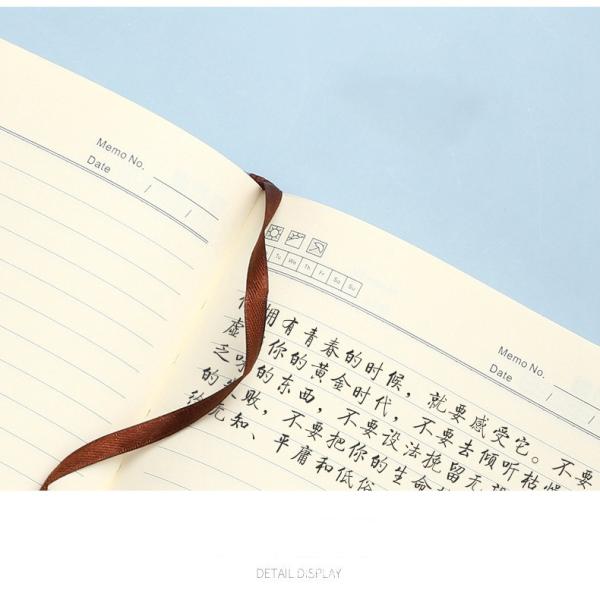 Memo No.
Date / /
Tu We Th Fr Sa Su
Memo No.
Date / /
拥有青春的时候，就要感受它。不要
虚 你的黄金时代，不要去倾听枯燥
乏 的东西，不要设法挽留无
的失败，不要把你的生命
给无知、平庸和低俗
DETAIL DISPLAY